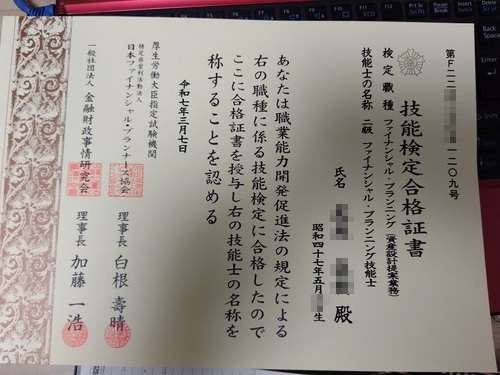 第F二二一二〇九号
技能検定合格証書
検定職種 ファイナンシャル・プランニング(資産設計提案業務)
技能士の名称 二級 ファイナンシャル・プランニング技能士
氏名 殿
昭和四十七年五月 生
あなたは職業能力開発促進法の規定による
右の職種に係る技能検定に合格したので
ここに合格証書を授与し右の技能士の名称を
称することを認める
令和七年三月七日
厚生労働大臣指定試験機関
特定非営利活動法人
日本ファイナンシャル・プランナーズ協会 理事長 白根壽晴
一般社団法人 金融財政事情研究会 理事長 加藤一浩
Prt Sc
SysRq
Pause
Break
Ins
Del
Back
Space
Enter